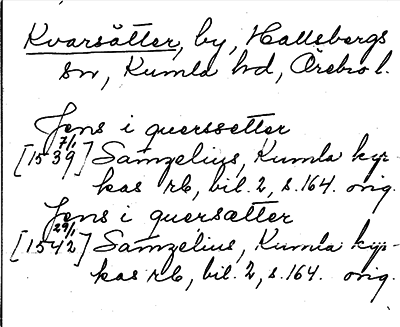 Kvarsätter, by, Hallsbergs
sn, Kumla hd, Örebro l.
Jens i querssetter
[15 7/1 39] Samzelius, Kumla kyr-
kas rb, bil. 2, s. 164. orig.
Jens i quersætter
[15 29/1 42] Samzelius, Kumla kyr-
kas rb, bil. 2, s. 164. orig.